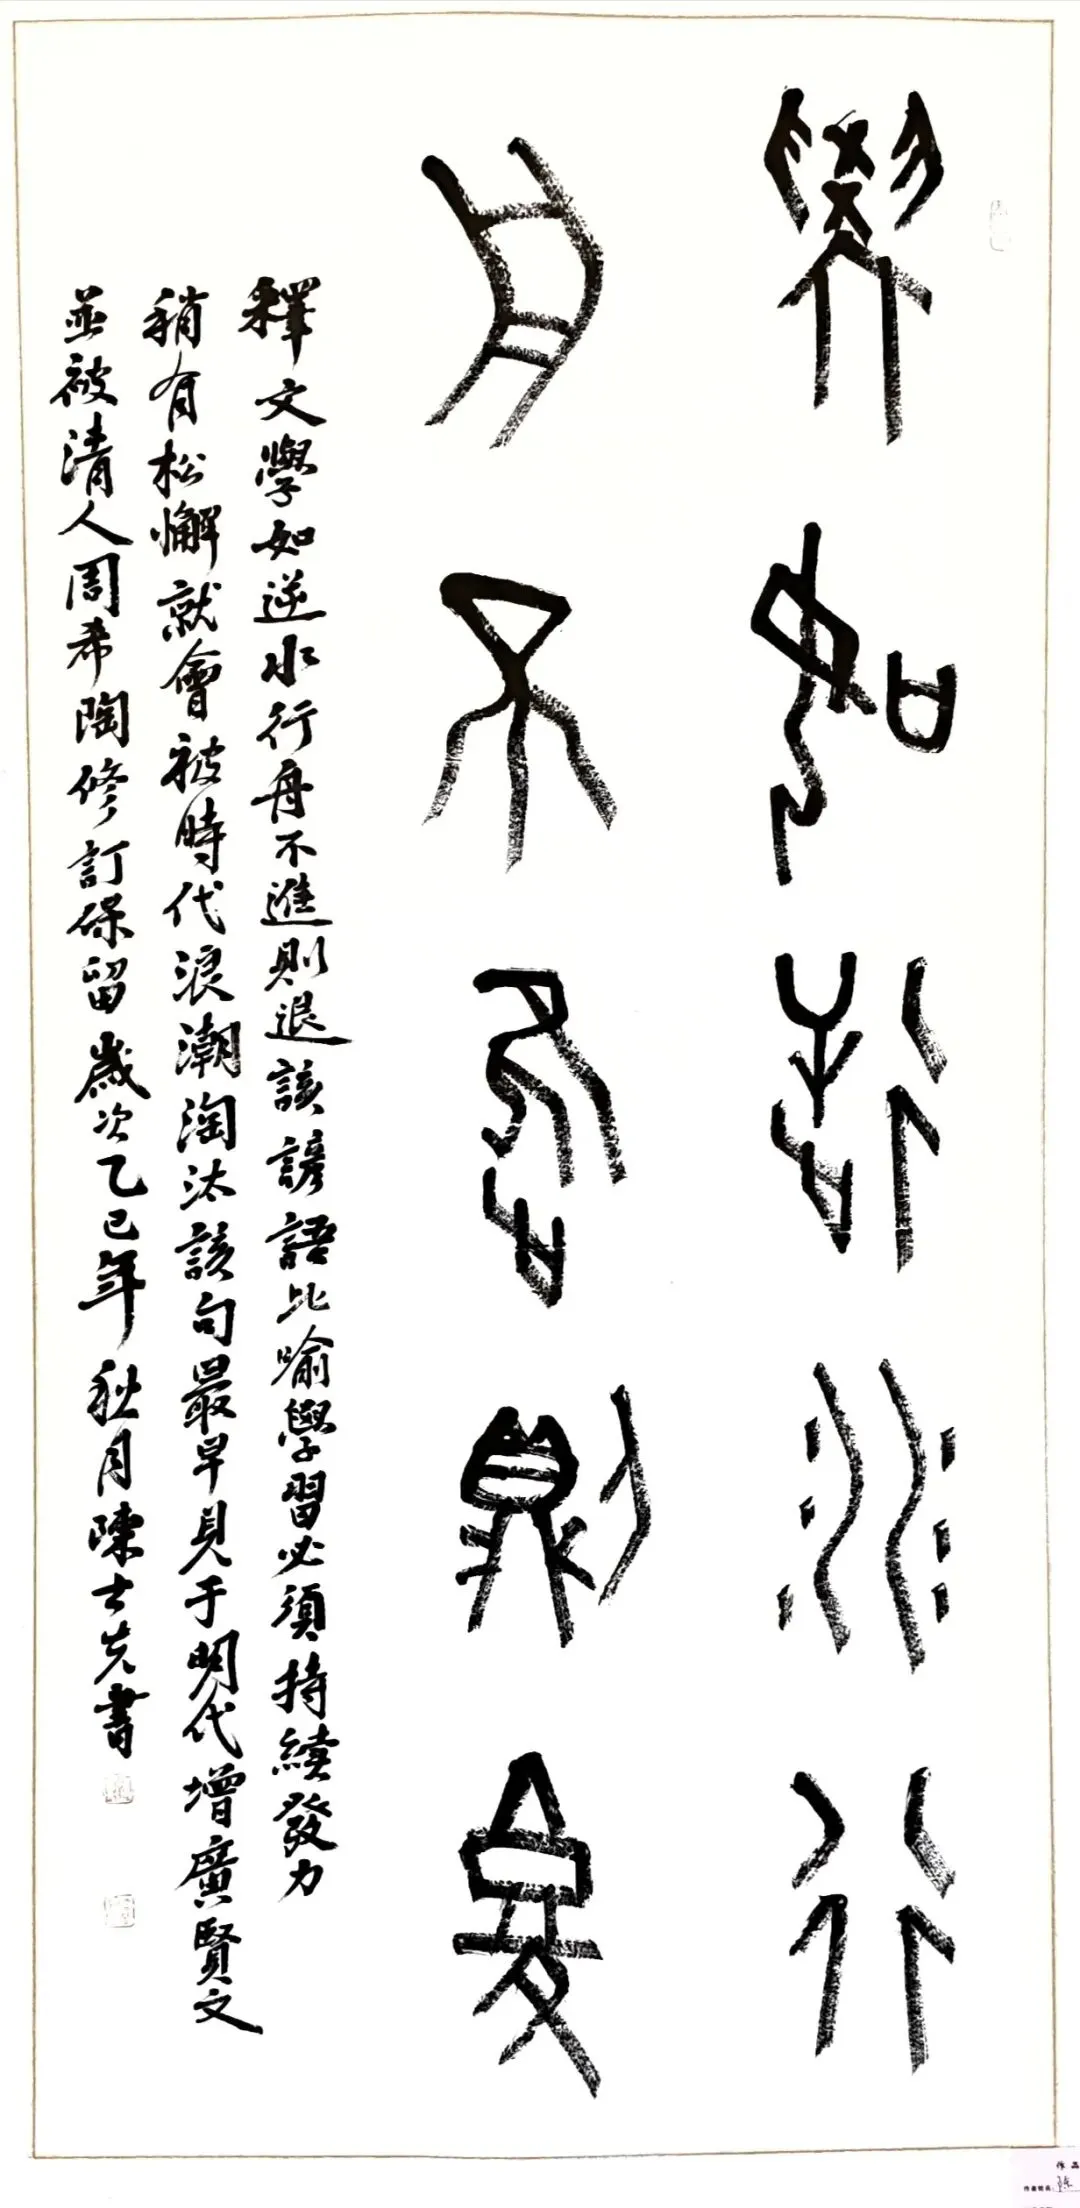 學如逆水行
舟不進則退
釋文學如逆水行舟不進則退該諺語比喻學習必須持續發力
稍有松懈就會被時代浪潮淘汰該句最早見于明代增廣賢文
並被清人周希陶修訂保留歲次乙巳年秋月陳士先書
作品
作者姓名：陈